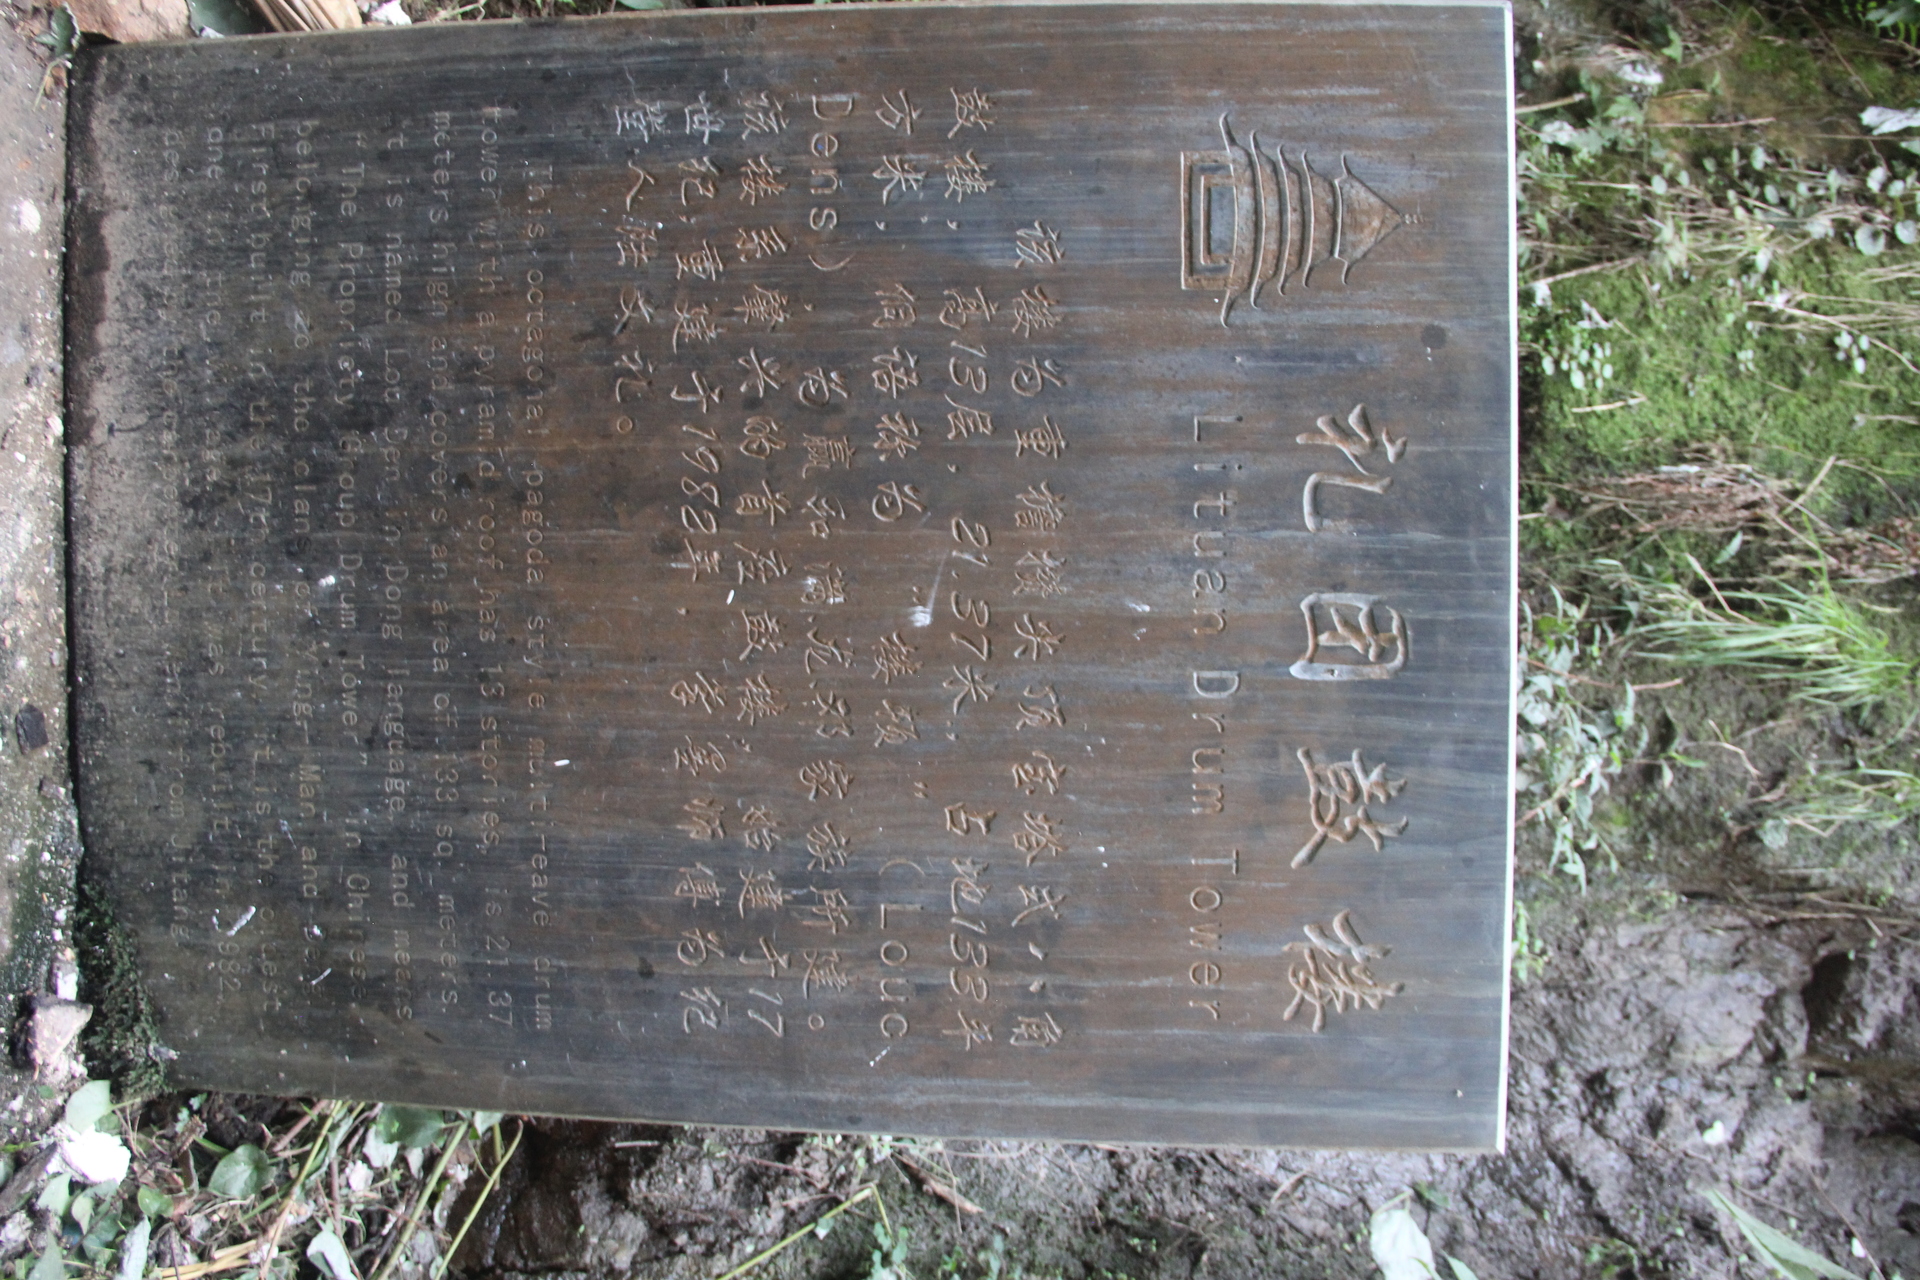 礼团鼓楼
Lituan Drum Tower
该楼为重檐攒尖顶宝塔式八角
鼓楼，高13层，21.37米，占地133平
方米，侗语称为“楼顿”（Louc
Dens），为嬴和满老邓家族所建。
该楼系肇兴的首座鼓楼，始建于17
世纪，重建于1982年，客堂
堂人陆文礼。
This octagonal pagoda style multi-eave drum
tower with a pyramid roof has 13 stories, is 21.37
meters high and covers an area of 133 sq. meters.
It is named Lou Den in Dong language and means
“The Propriety Group Drum Tower” in Chinese
belonging to the clans of Ying, Man and
First built in the 17th century, it is the oldest
one in the village. It was rebuilt in 1982,
designed by from Jitang.